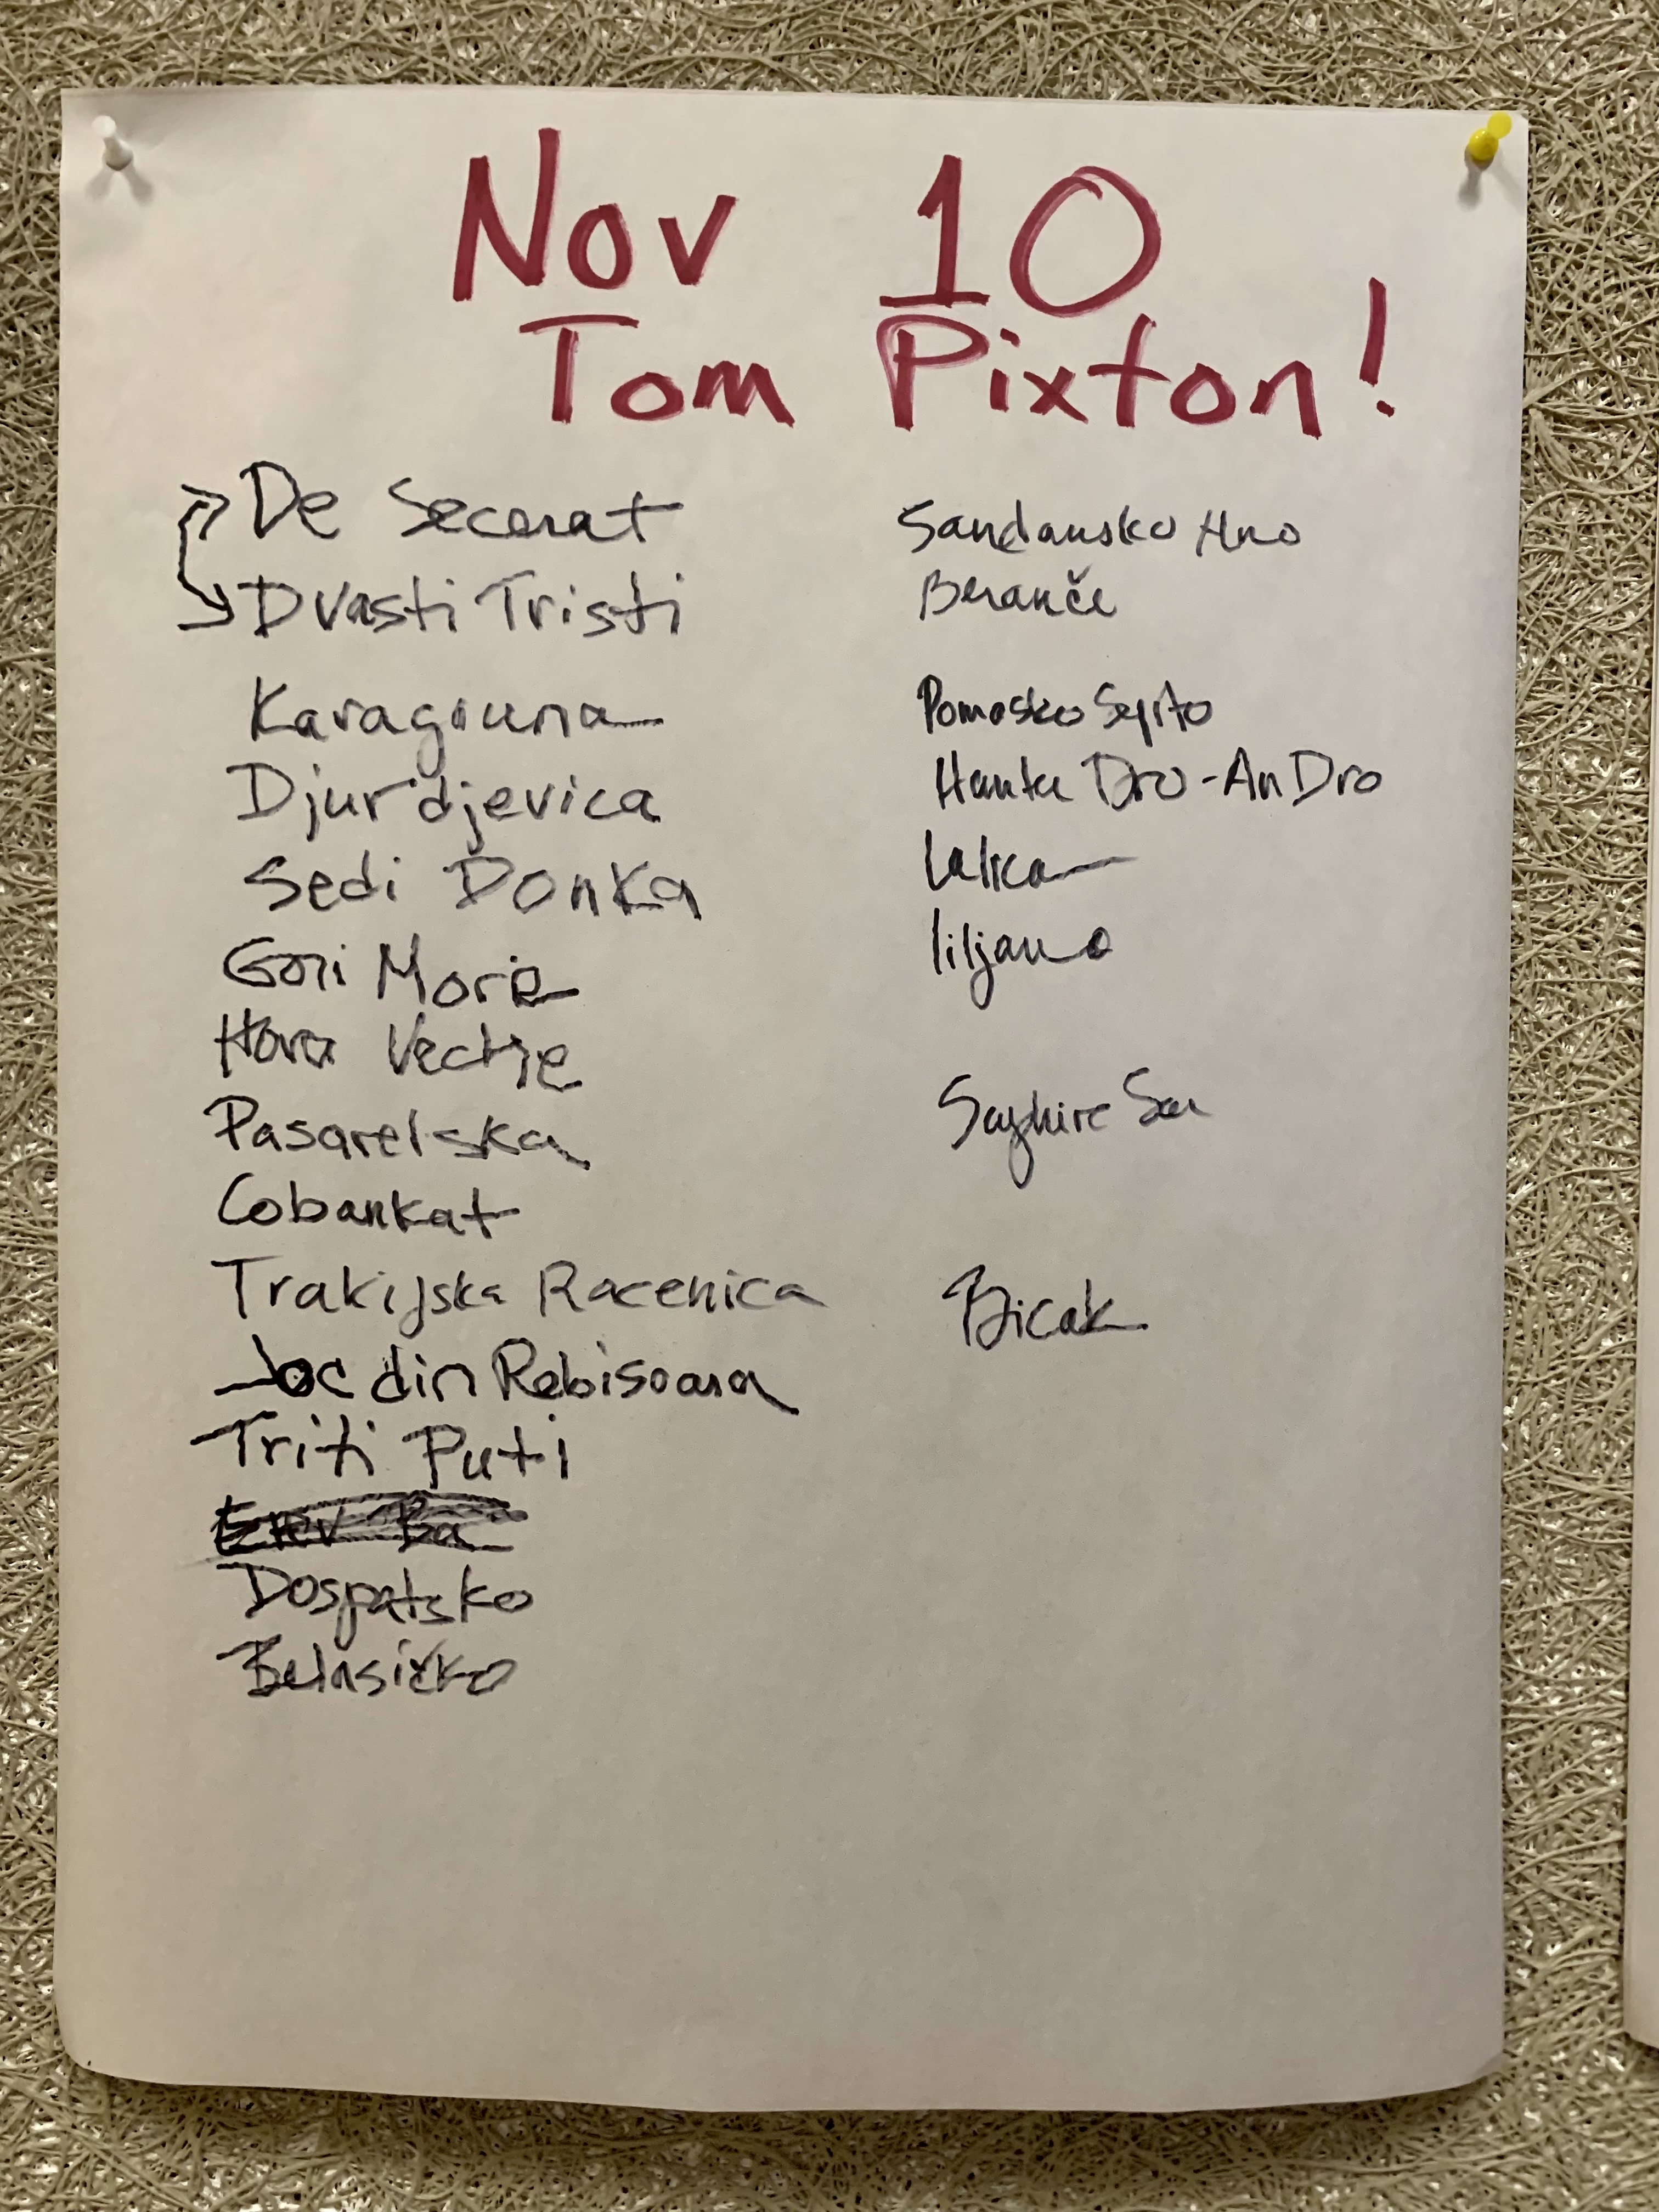 Nov 10
Tom Pixton!
De Secerat
Dvasti Tristi
Karagouna
Djurdjevica
Sedi Donka
Gori More
Hora Veche
Pasarelska
Cobankat
Trakijska Racenica
Joc din Rebisoara
Triti Puti
Erev Ba
Dospatsko
Belasičko
Sandansko Hno
Beranče
Pomasko Syrto
Hanter Dro-An Dro
Lalica
liljano
Bicak